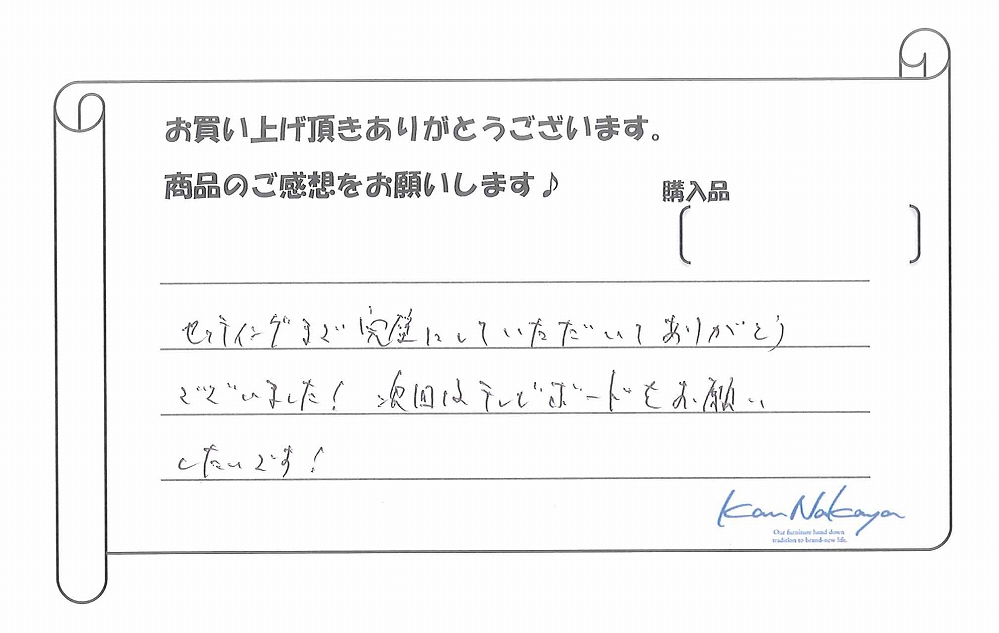 お買い上げ頂きありがとうございます。
商品のご感想をお願いします♪
購入品
セッティングまで完璧にしていただいてありがとう
ございました！ 次回はテレビボードをお願い
したいです！
Kan Nakaya
Our furniture hand down
tradition to brand-new life.